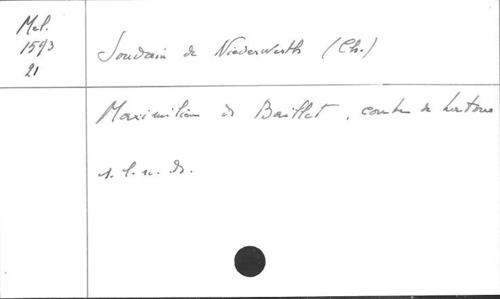 Mel.
1593
21
Soudain de Niederwerth (Ch.)
Maximilien de Baillet, comte de Latour
s. l. n. d.